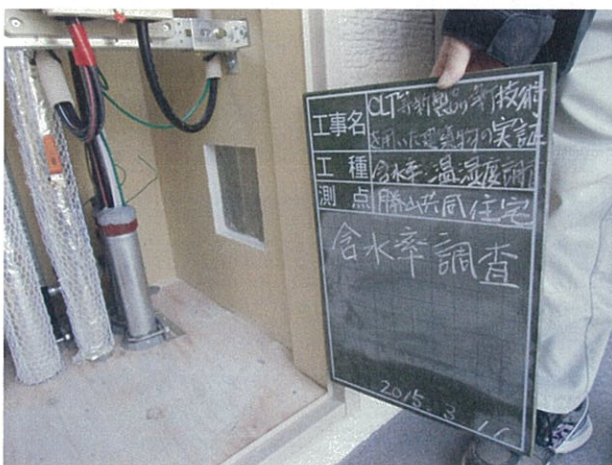 工事名 CLT等新製品・新技術
を用いた建築物の実証
工種 含水率・温湿度計測
測点 勝山共同住宅
含水率調査
2015.3.16